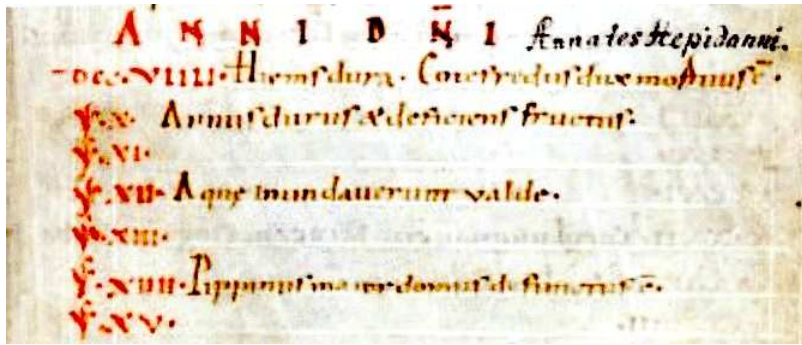 A N N I D N̄ I Annales Hepidanni.
DCC.VIIII. Hiems dura. Cotefredus dux mortuus ē.
X. Annus durus & deficiens fructus.
XI.
XII. Aquę inundauerunt valde.
XIII.
XIIII. Pippinus maior domus defunctus ē.
XV.